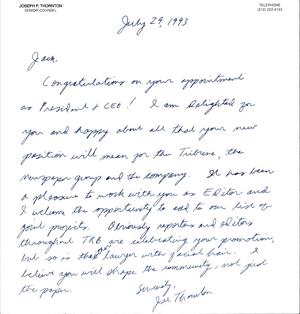 JOSEPH P. THORNTON
SENIOR COUNSEL
TELEPHONE
(312) 222-4123
July 29, 1993
Jack,
Congratulations on your appointment
as President & CEO! I am delighted for
you and happy about all that your new
position will mean for the Tribune, the
newspaper group and the company. It has been
a pleasure to work with you as Editor and
I welcome the opportunity to add to our list of
joint projects. Obviously reporters and editors
throughout TRB are celebrating your promotion,
but so is this lawyer with facial hair. I
believe you will shape the community, not just
the paper.
Sincerely,
Joe Thornton